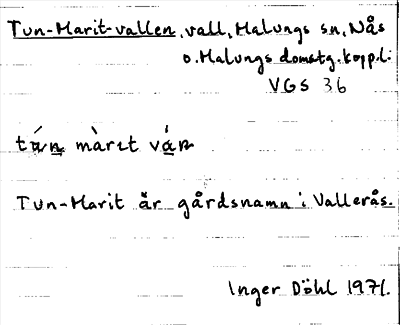 Tun-Marit-vallen, vall, Malungs sn, Nås
o. Malungs domstg. kopp.l:
VGS 36
màrɩt
Tun-Marit är gårdsnamn i Vallerås.
Inger Döhl 1971.